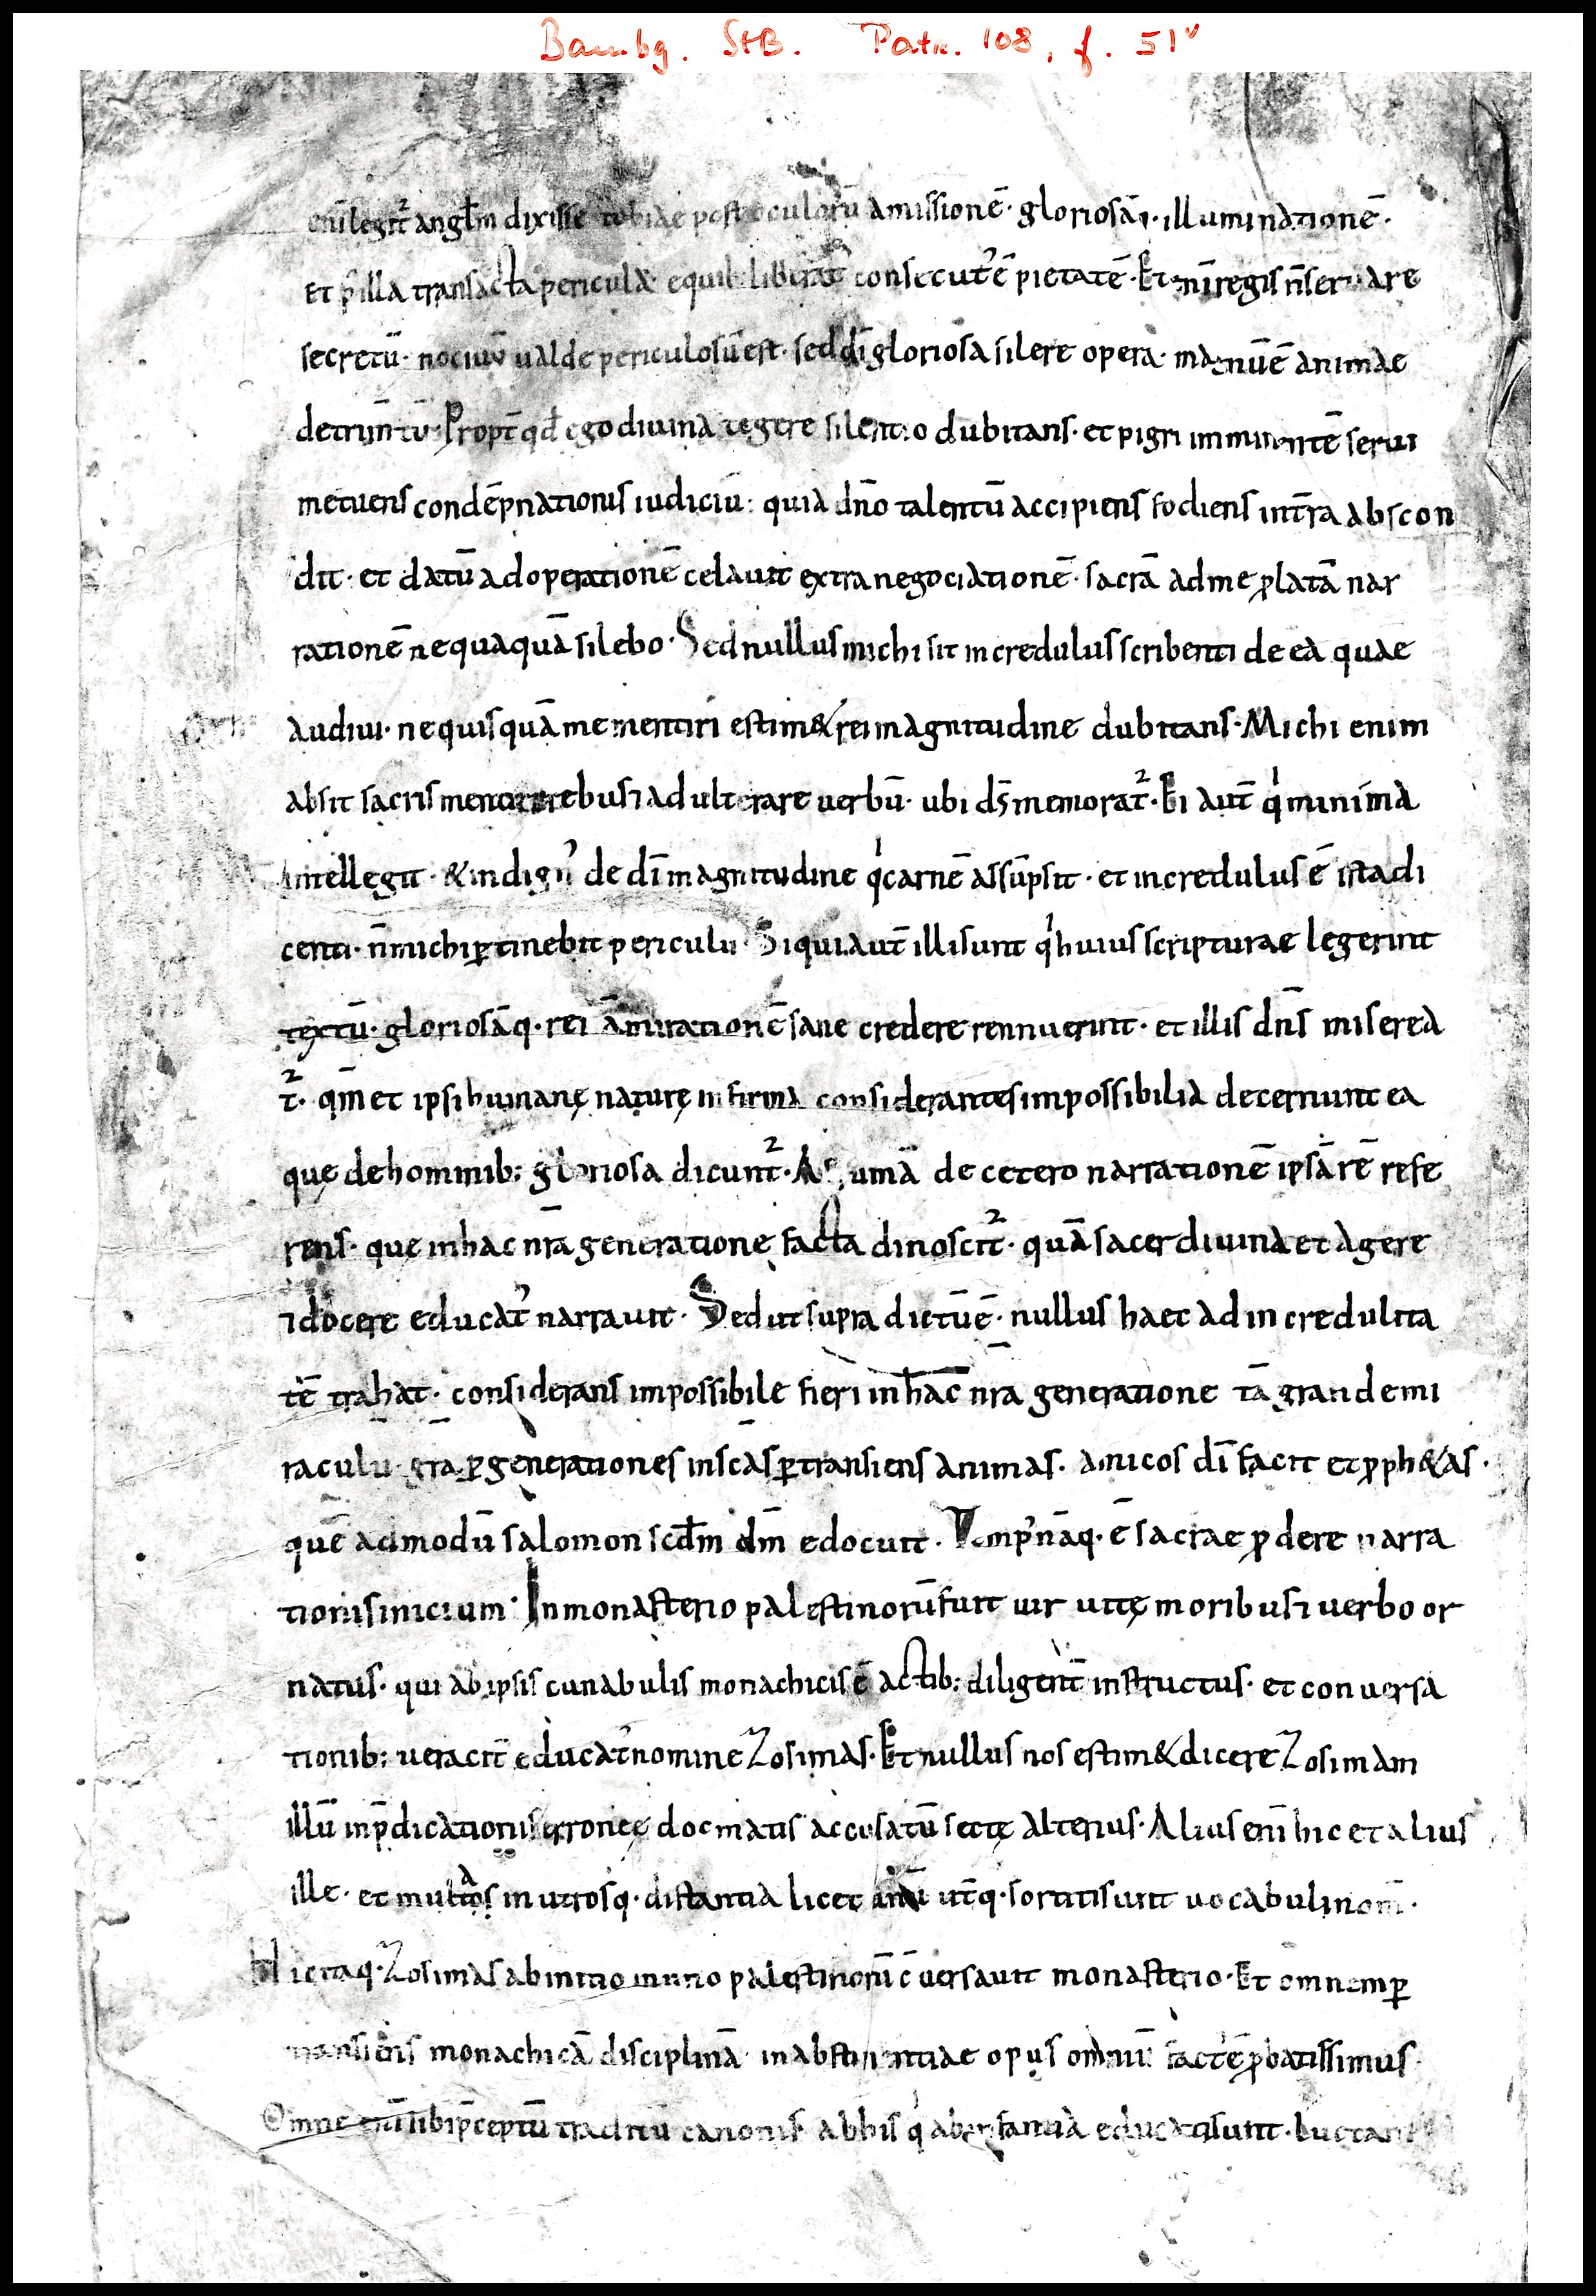 Bambg. StB. Patr. 108, f. 51v
eni̅ legit᷑ angl̅m dixisse tobiae post oculoru̅ amissione̅· gloriosa̅ illuminatione̅·
Et p̲ illa transacta pericula· equib; liberat᷒ consecut᷒ e̅ pietate̅· Et eni̅ regis n̅ seruare
secretu̅· nociuu̅ ualde periculosu̅ est· sed di̅ gloriosa silere opera· magnu̅ e̅ animae
detrim̅tu̅· Propt̅ qd̅ ego diuina tegere silentio dubitans· et pigri imminente̅ serui
metuens conde̅pnationis iudiciu̅: quia dn̅o talentu̅ accipiens fodiens int̅ra abscon
dit· et datu̅ ad operatione̅ celauit extra negociatione̅· sacra̅ ad me ꝓlata̅ nar
ratione̅ nequaqua̅ silebo· Sed nullus michi sit incredulus scribenti de ea quae
audiui· ne quisqua̅ me mentiri estim& rei magnitudine dubitans· Michi enim
absit sacris mentire rebus ⁊ adulterare uerbu̅· ubi ds̅ memorat᷑· Ei aut̅ qͥ minima
intellegit· & indign᷒ de di̅ magnitudine qͥ carne̅ assu̅psit· et incredulus e̅ ista di
centi· n̅ michi ꝑtinebit periculu̅· Siqui aut̅ illi sunt qͥ huius scripturae legerint
textu̅· gloriosa̅q· rei a̅miratione̅ sane credere rennuerint· et illis dn̅s miserea
t᷑· qm̅ et ipsi humanę naturę infirma considerantes impossibilia decernunt ea
quę de hominib; gloriosa dicunt᷑· Assuma̅ de cetero narratione̅ ipsa̅ re̅ refe
rens· quę in hac nr̅a generatione facta dinoscit᷑· qua̅ sacer diuina et agere
⁊ docere educat᷒ narrauit· Sed ut supra dictu̅ e̅· nullus haec ad incredulita
te̅ trahat· considerans impossibile fieri in hac nr̅a generatione ta̅ grande mi
raculu̅· gr̅a ꝑ generationes in sc̅as ꝑtransiens animas· amicos di̅ facit et ꝓph&as·
que̅ admodu̅ salomon scd̅m dm̅ edocuit· Temp᷒ na̅q· e̅ sacrae ꝓdere narra
tionis inicium· In monasterio palestinoru̅ fuit uir uitę moribus ⁊ uerbo or
natus· qui ab ipsis cunabulis monachicis e̅ actib; diligent̅ instructus· et conuersa
tionib; ueracit̅ educat᷒ nomine Zosimas· Et nullus nos estim& dicere Zosimam
illu̅ in p̅dicationis erroneę docmatis accusatu̅ sectę alterius· Alius eni̅ hic et alius
ille· et multa in utrosq· distantia licet ut̅q· sortiti sunt uocabuli nom̅·
Hic itaq· Zosimas ab initio in uno palestinoru̅ c̅uersauit monasterio· Et omnem ꝑ
transiens monachica̅ disciplina̅ in abstinentiae opus omniu̅ fact᷒ e̅ ꝓbatissimus·
Omne eni̅ sibi p̅ceptu̅ traditu̅ canonis ab his qͥ ab infantia educati sunt·